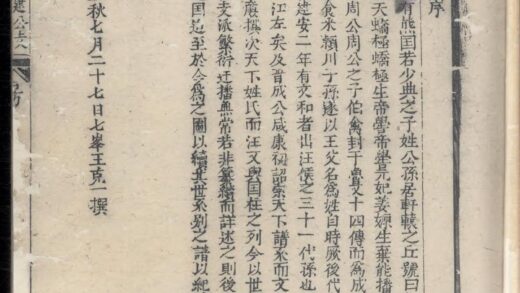 序
有熊国若少典之子姓公孫居軒轅之丘號曰
天蟜極蟜極生帝嚳帝嚳元妃姜嫄生棄能播
周公周公之子伯禽封于魯又十四傳而為成
食采潁川子孫遂以王父名為姓自時厥後代
建安二年有文和者出汪侯之三十一代孫也
江左矣及晋成公咸康初詔索天下譜系而文
撰次天下姓氏而汪又與国柱之列今以世
支派繁衍迁播無常若非纂續而詳述之則後
国迄至於今為之圖以續其世系别之譜以紀
秋七月二十七日七峯王克一撰
建公支